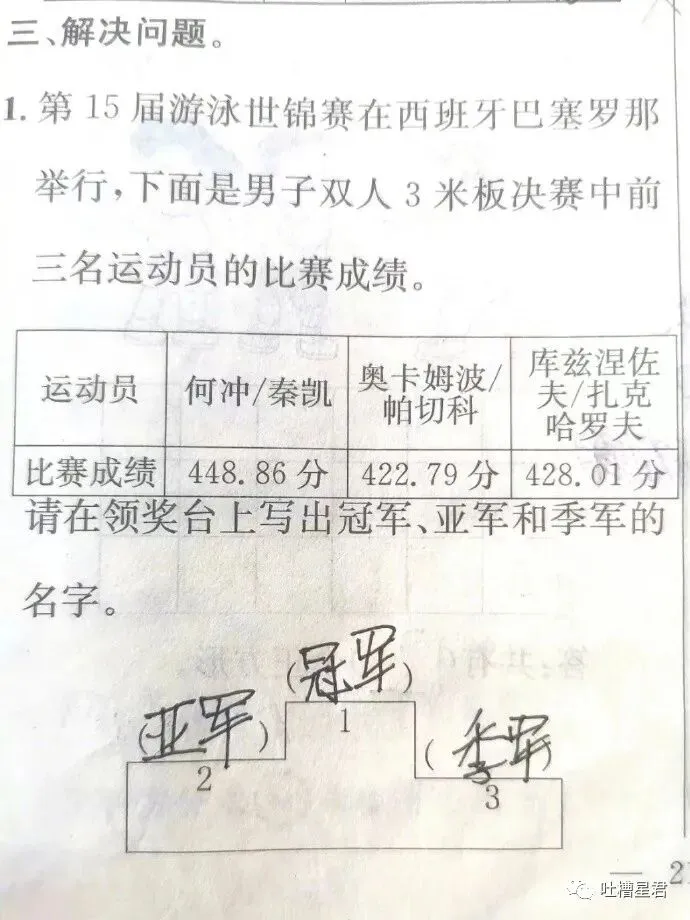 三、解决问题。
1. 第 15 届游泳世锦赛在西班牙巴塞罗那
举行，下面是男子双人 3 米板决赛中前
三名运动员的比赛成绩。
运动员 何冲/秦凯 奥卡姆波/帕切科 库兹涅佐夫/扎克哈罗夫
比赛成绩 448.86 分 422.79 分 428.01 分
请在领奖台上写出冠军、亚军和季军的
名字。
(冠军)
1
(亚军)
2
(季军)
3
— 21
吐槽星君